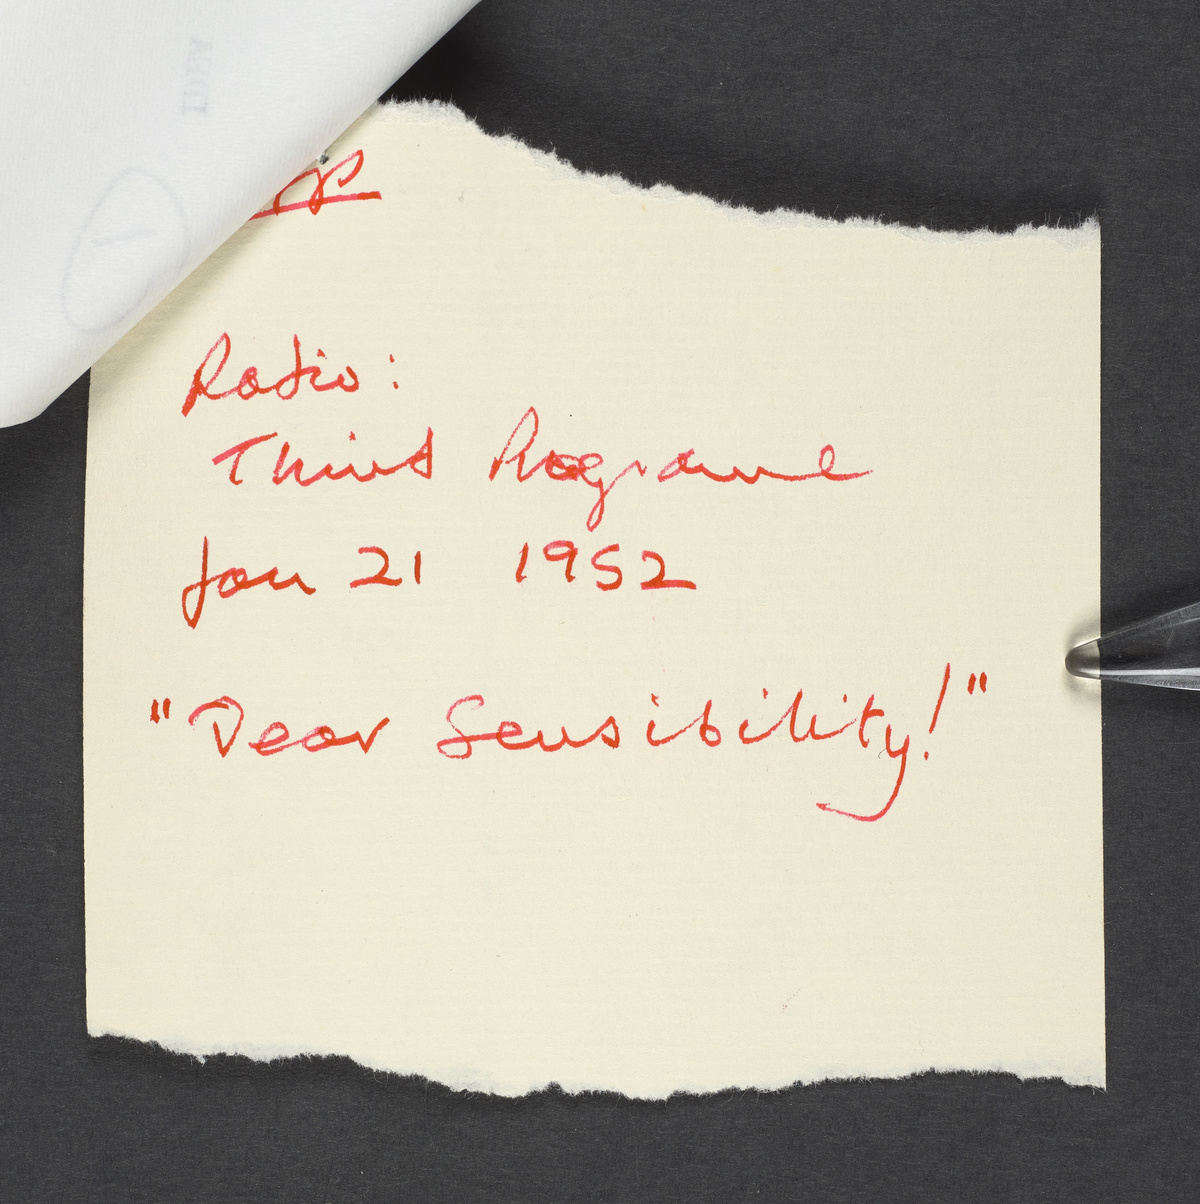 Radio:
Third Programme
Jan 21 1952
"Dear Sensibility!"